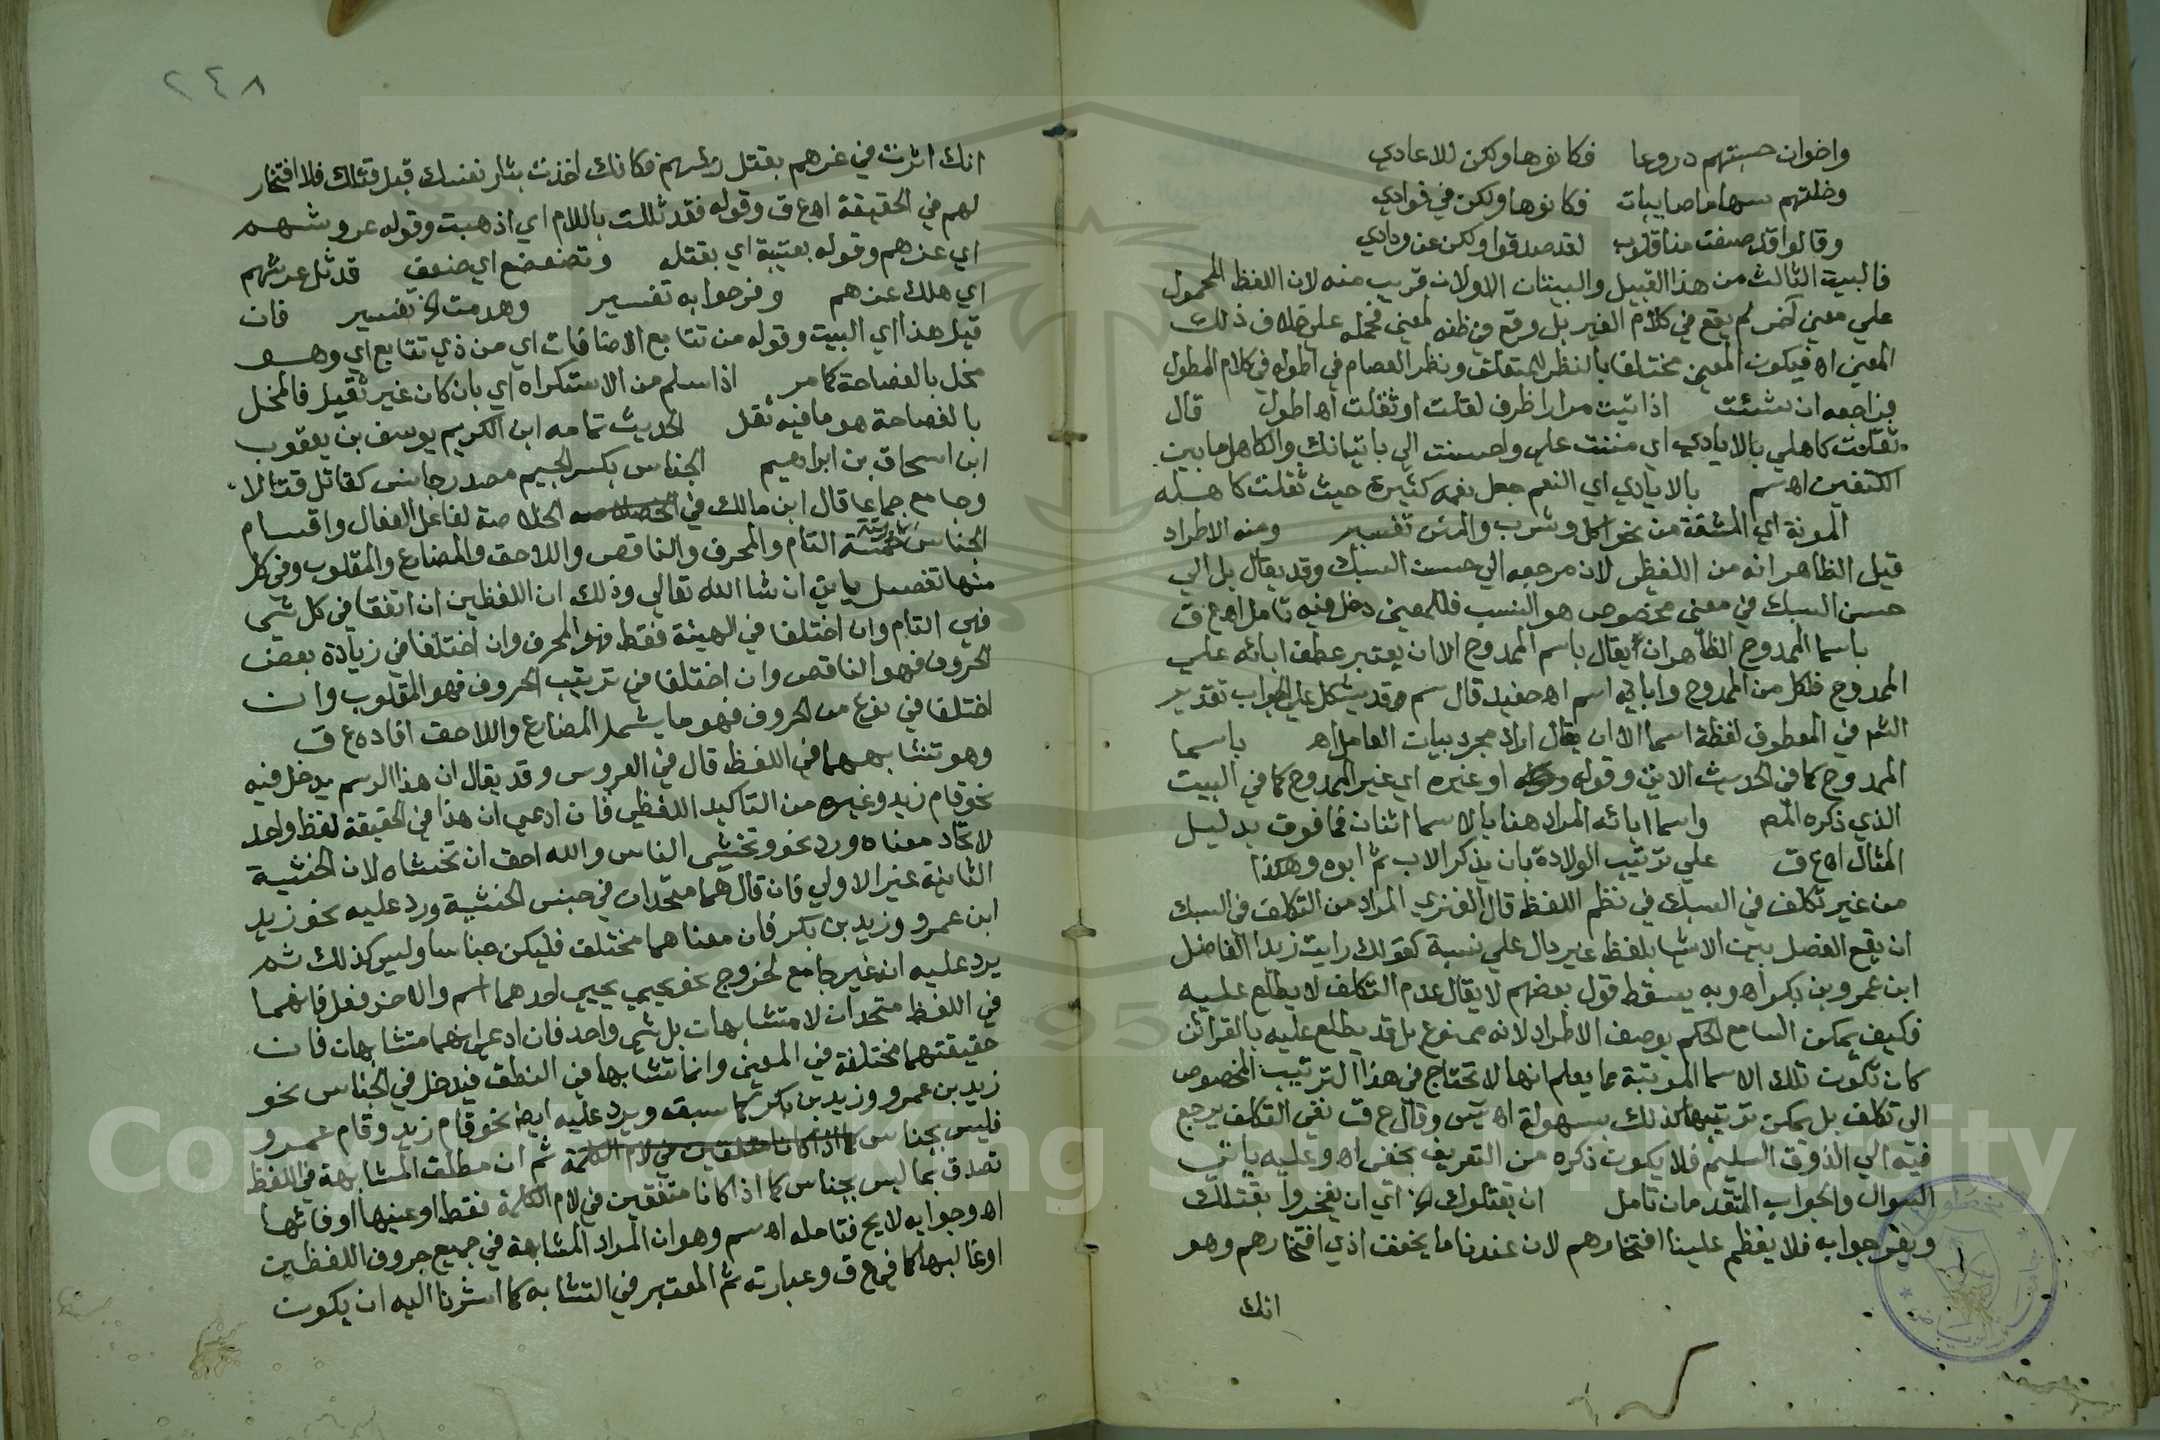 واخوان حسبتهم دروعا فكانوها ولكن للاعادي
وخلتهم سهاما صايبات فكانوها ولكن في فوادي
وقالوا قد صفت منا قلوب لقد صدقوا ولكن عن ودادي
فالبيت الثالث من هذا القبيل والبيتان الاولان قريب منه لان اللفظ المحمول
علي معني آخر لم يقع في كلام الغير بل وقع في ظنه لمعني فحمله علي خلاف ذلك
المعني اه فيكون المعني مختلفا بالنظر للمتعلق ونظر العصام في اطوله في كلام المطول
فراجعه ان شئت اذ اتيت مرارا ظرف لقلت او ثقلت اه اطول قال
ثقلت كاهلي بالايادي اي مننت علي واحسنت الي باتيانك والكاهل ما بين
الكتفين اه سم بالايادي اي النعم جعل نعمه كثيرة حيث ثقلت كاهله
المونة اي المشقة من نحو اكل وشرب والمن تفسير ومنه الاطراد
قيل الظاهر انه من اللفظي لان مرجعه الي حسن السبك وقد يقال بل الي
حسن السبك في معني مخصوص هو النسب فللمعني دخل فيه تامل اه ع ق
باسما الممدوح الظاهر ان يقال باسم الممدوح الا ان يعتبر عطف ابائه علي
الممدوح فلكل من الممدوح وابائه اسم اه حفيد قال سم وقد يشكل علي الجواب تقدير
الشم في المعطوف لفظة اسما الا ان يقال اراد مجرد بيان العامل اه باسما
الممدوح كما في الحديث الاتي وقوله او غيره اي غير الممدوح كما في البيت
الذي ذكره المص واسما ابائه المراد هنا بالاسما اثنان فما فوق بدليل
المثال اه ع ق علي ترتيب الولادة بان يذكر الاب ثم ابوه وهكذا
من غير تكلف في السبك في نظم اللفظ قال الفنري المراد من التكلف في السبك
ان يقع الفصل بين الاسما بلفظ غير دال علي نسبة كقولك رايت زيدا الفاضل
ابن عمرو بن بكر اه وبه يسقط قول بعضهم لا يقال عدم التكلف لا يطلع عليه
فكيف يمكن السامع الحكم بوصف الاطراد لانه ممنوع بل قد يطلع عليه بالقرائن
كان تكون تلك الاسما المرتبة مما يعلم انها لا تحتاج في هذا الترتيب المخصوص
الي تكلف بل يمكن ترتيبها كذلك بسهولة اه يس وقال ع ق نفي التكلف يرجع
فيه الي الذوق السليم فلا يكون ذكره من التعريف بخفي اه وعليه ياتي
السوال والجواب المتقدمان تامل ان يقتلوك الخ اي ان يفخروا بقتلك
ويفرحوا به فلا يعظم علينا افتخارهم لان عندنا ما يخفف اذي افتخارهم وهو
انك
٢٤٨
انك اثرت في غرهم بقتل رئيسهم فكانك اخذت بثار نفسك قبل قتلك فلا افتخار
لهم في الحقيقة اه ع ق وقوله فقد ثللت باللام اي اذهبت وقوله عروشهم
اي عزهم وقوله بعتيبة اي بقتله وتضعضع اي ضعف قد ثل عرشهم
اي هلك عزهم وفرحوا به تفسير وهدمت الخ تفسير فان
قيل هذا اي البيت وقوله من تتابع الاضافات اي من ذي تتابع اي وهو
مخل بالفصاحة كما مر اذا سلم من الاستكراه اي بان كان غير ثقيل فالمخل
بالفصاحة هو ما فيه ثقل الحديث تمامه ابن الكريم يوسف بن يعقوب
ابن اسحاق بن ابراهيم الجناس بكسر الجيم مصدر جانس كقاتل قتالا
وجامع جماعا قال ابن مالك في الخلاصة لفاعل الفعال واقسام
الجناس خمسة التام والمحرف والناقص واللاحق والمضارع والمقلوب وفي كل
منها تفصيل ياتي ان شا الله تعالي وذلك ان اللفظين ان اتفقا في كل شي
فهي التام وان اختلفا في الهيئة فقط فهو المحرف وان اختلفا في زيادة بعض
الحروف فهو الناقص وان اختلفا في ترتيب الحروف فهو المقلوب وان
اختلفا في نوع من الحروف فهو ما يشمل المضارع واللاحق افاده ع ق
وهو تشابههما في اللفظ قال في العروس وقد يقال ان هذا الرسم يدخل فيه
نحو قام زيد وغيره من التاكيد اللفظي فان ادعي ان هذا في الحقيقة لفظ واحد
لاتحاد معناه ورد نحو وتخشي الناس والله احق ان تخشاه لان الخشية
الثانية غير الاولي فان قال هما متحدان في جنس الخشية ورد عليه نحو زيد
ابن عمرو وزيد بن بكر فان معناهما مختلف فليكن جناسا وليس كذلك ثم
يرد عليه انه غير جامع لخروج نحو يحيي يحيي احدهما اسم والاخر فعل فانهما
في اللفظ متحدان لا متشابهان بل شي واحد فان ادعي انهما متشابهان فان
حقيقتهما مختلفة في المعني وانما تشابها في النطق فيدخل في الجناس نحو
زيد بن عمرو وزيد بن بكر كما سبق ويرد عليه ايضا نحو قام زيد وقام عمرو
فليس بجناس ثم ان مطلق المشابهة في اللفظ
تصدق بما ليس بجناس كما اذا كانا متفقين في لام الكلمة فقط او عينها او فائها
اه وجوابه لايح فتامله اه سم وهو ان المراد المشابهة في جميع حروف اللفظين
او غالبها كما في ع ق وعبارته ثم المعتبر في التشابه كما اشرنا اليه ان يكون